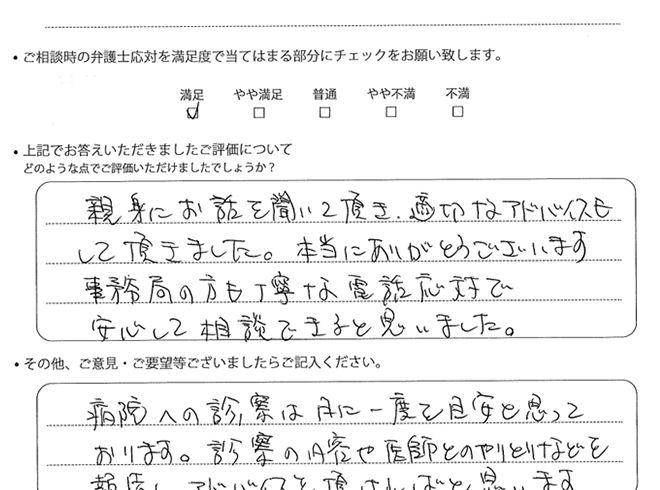 • ご相談時の弁護士応対を満足度で当てはまる部分にチェックをお願い致します。
満足 やや満足 普通 やや不満 不満
☑ □ □ □ □
• 上記でお答えいただきましたご評価について
どのような点でご評価いただけましたでしょうか?
親身にお話を聞いて頂き、適切なアドバイスも
して頂きました。本当にありがとうございます
事務局の方も丁寧な電話応対で
安心して相談できると思いました。
• その他、ご意見・ご要望等ございましたらご記入ください。
病院への診察は月に一度を目安と思って
おります。診察の内容や医師とのやりとりなどを
アドバイスを頂ければと思います